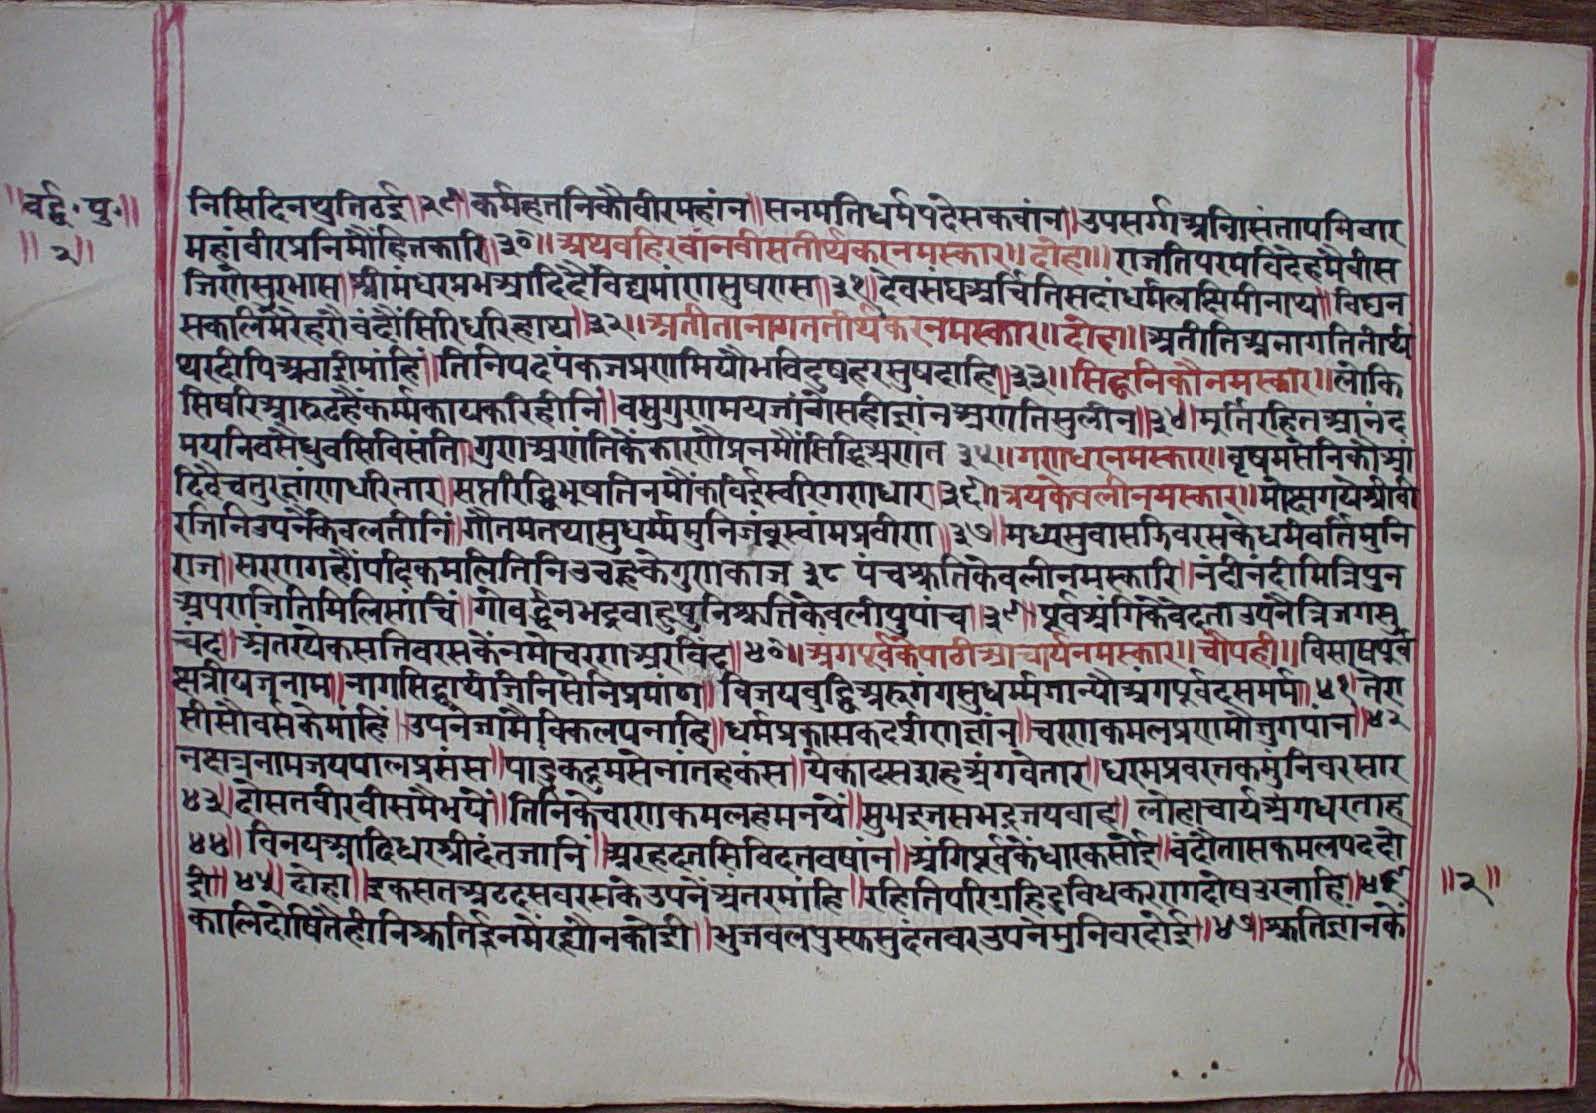 ॥वर्द्ध॰पु॰॥
॥२॥
निसिदिनथुतिठई॥२९॥कर्महतनिकौवीरमहांन॥सनमतिधर्मपदेसकवांन॥उपसर्गाअग्निसंतापनिवार
महांवीरप्रनिमौंहितकारि॥३०॥अथवहिरवांनवीसतीर्थंकरनमस्कार॥दोहा॥राजतिपरपविदेहमैवीस
जिणेसुरभास॥श्रीमंधरप्रभआदिदैविद्यमांणसुषरास॥३१॥देवसंघअर्चितिसदांधर्मलछिमीनाथ॥विघन
सकलिमेरेहरौवंदौंसिरिधरिहाथ॥३२॥अतीतानागततीर्थंकरनमस्कार॥दोहा॥अतीतिअनागतितीर्थ
थरदीपिअढाईमांहि॥तिनिपदपंकजप्रणमियौभविदुषहरसुषदाहि॥३३॥सिद्धनिकौनमस्कार॥लोकि
सिषरिआरुढहैंकर्म्मकायकरिहीनिं॥वसुगुणमयजांनेसहीज्ञांनअरणंतिसुलीन॥३४॥मुर्तिरहितआनंद
मयनिवसैध्रुवसिविसंति॥गुणअणंतिकेकारणैप्रनमौंसिद्धिअणंत ३५॥गणधरनमस्कार॥वृषभसेनिकौआं
दिदैचतुरज्ञांणधरितार॥सप्तरिद्धिभूषतिनमौंकविईस्वरिगणधार॥३६॥त्रयकेवलीनमस्कार॥मोक्षगयेश्रीवी
रजिनिउपनैकेवलतीनि॥गौतमतथासुधर्म्ममुनिजंबूस्वांमप्रवीण॥३७॥मध्यसुवासठिवरसकेधर्मवर्तिमुनि
राज॥सरणगहौंपदिकमलितिनिउचहूकेगुणकाज ३८ पंचश्रुतिकेवलीनमस्कारि॥नंदीनंदीमित्रिपुन
अपराजितिमिलिसांचिं॥गोवर्द्धनभद्रवाहुपुनिश्रुतिकेवलीपुपांच॥३९॥पूर्वअंगिकेवेदताउपनेत्रिजगसु
चंद॥अंतरयेकसतिवरसकेंनमोचरणअरविंद॥४०॥अंगपूर्वकेपाठीआचार्यनमस्कार॥चौपही॥विसाषपूर्व
क्षत्रीयजूनाम॥नागसिद्धार्थजिनिसेनिप्रमांण॥विजयवुद्धिअरुगंगसुधर्म्मगान्यौअंगपूर्वदसमर्म॥४१॥तेरा
सीसौवर्सकेमांहिं॥उपनेजांमैविकलपनाहि॥धर्मप्रकासकदर्शिणज्ञांन॥चरणकमलप्रणमौजुगपांन॥४२
नक्षत्रनामजयपालप्रसंस॥पांडुकद्रुमसेनांतहकंस॥येकादसराहअंगवेतार॥धरमप्रवरतकमुंनिवरसार
४३॥दोसतवीरवीसमैभये॥तिनिकेचरणकमलहमनये॥सुभद्रजसभद्रजयवाह॥लोहाचार्यअंगधरताह
४४॥विनयआदिधरश्रीदंतजानिं॥अरहदत्तसिविदतवषांन॥अंगिपूर्वकेंधारकसोई॥वंदौतासकमलपददो
ई॥४५॥दोहा॥इकसतअठदसवरसकेउपनेंअंतरमांहि॥रहितिपरिग्रहिदुविधकररागदोषउरनाहि॥४६॥
॥२॥
कालिदोषितैहीनिश्रुतिईनमेंरह्यौनकोई॥भुजवलपुस्फसुदंतवरउपनेमुनिवरहोई॥४७॥श्रुतिज्ञानकें